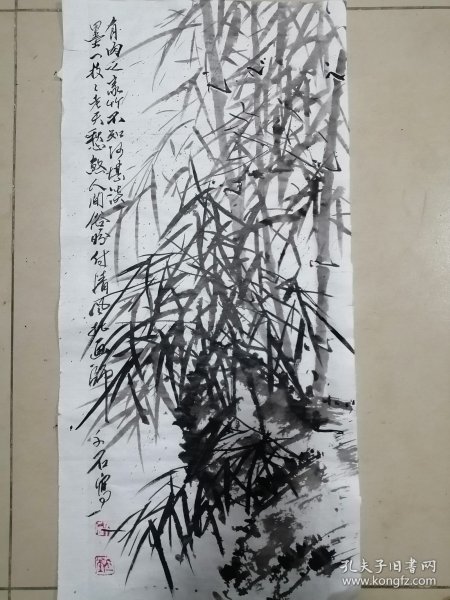 有肉之家竹不知何堪淡
墨一枝之老天愁煞人间俗
付清风化画师
千石写
孔夫子旧书网
www.kongfz.com